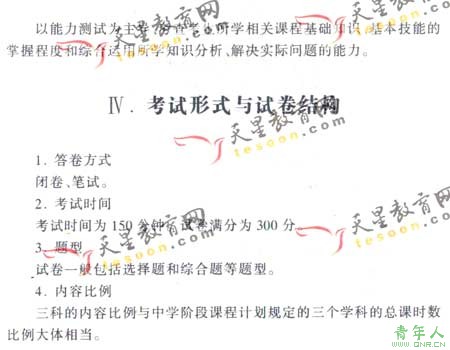 以能力测试为主导,考查学生所学相关课程基础知识、基本技能的
掌握程度和综合运用所学知识分析、解决实际问题的能力。
Ⅳ.考试形式与试卷结构
1.答卷方式
闭卷、笔试。
2.考试时间
考试时间为150分钟,试卷满分为300分。
3.题型
试卷一般包括选择题和综合题等题型。
4.内容比例
三科的内容比例与中学阶段课程计划规定的三个学科的总课时数
比例大体相当。
天星教育网
tesoon.com
天星教育网
tesoon.com
天星教育网
tesoon.com
天星教育网
tesoon.com
天星教育网
tesoon.com
天星教育网
tesoon.com
青年人
www.QNR.CN